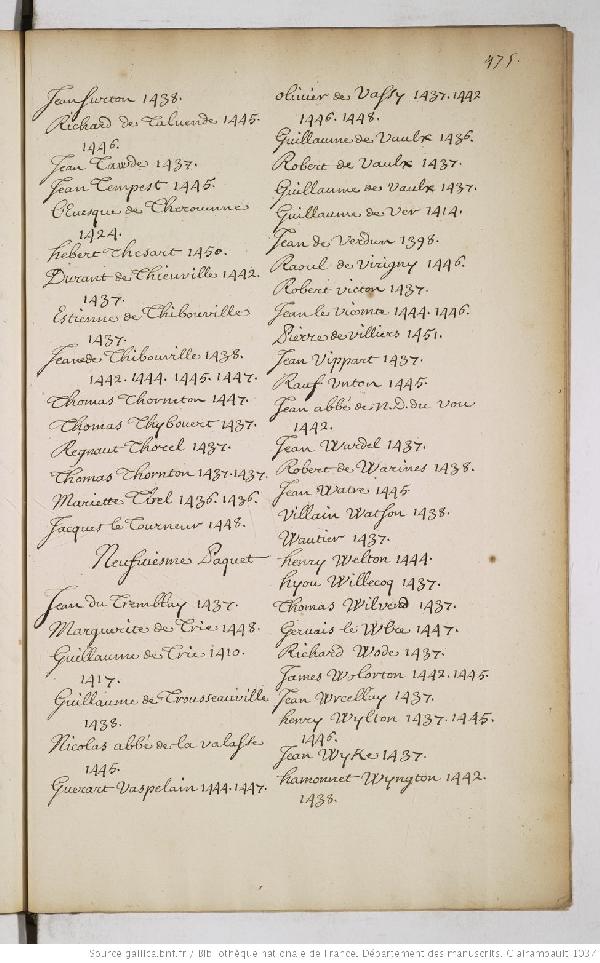 475.
Jean surton 1438.
Richard de Taluende 1445.
1446.
Jean Tawde 1437.
Jean Tempest 1445.
L'Euesque de Therouenne
1424.
hebert Thesart 1450.
Durant de Thieuville 1442.
1437.
Estienne de Thibouville
1437.
Jean de Thibouville 1438.
1442. 1444. 1445. 1447.
Thomas Thornton 1447.
Thomas Thybouert 1437.
Regnaut Thorel 1437.
Thomas Thornton 1437. 1437.
Mariette Tirel 1436. 1436.
Jacques le Tourneur 1448.
Neufuiesme Paquet
Jean du Tremblay 1437.
Marguerite de Trie 1448.
Guillaume de Trie 1410.
1417.
Guillaume de Trousseauville
1438.
Nicolas abbé de la valasse
1445.
Guerart Vaspelain 1444. 1447.
olivier de Vassy 1437. 1442
1446. 1448.
Guillaume de Vaulx 1436.
Robert de Vaulx 1437.
Guillaume de Vaulx 1437.
Guillaume de Ver 1414.
Jean de Verdun 1398.
Raoul de Virigny 1446.
Robert victon 1437.
Jean le Viconte 1444. 1446.
Pierre de villiers 1451.
Jean Vippart 1437.
Rauf Vnton 1445.
Jean abbé de N.D. du vou
1442.
Jean Wardel 1437.
Robert de Warines 1438.
Jean Watre 1445
Villain Watson 1438.
Wautier 1437.
henry Welton 1444.
hyou Willecoq 1437.
Thomas Wilverd 1437.
Gervais le Wbre 1447.
Richard Wode 1437.
James Worlorton 1442. 1445.
Jean Wrcellay 1437.
henry Wylton 1437. 1445.
1446.
Jean Wyke 1437.
hamonnet Wyngton 1442.
1438.
Source gallica.bnf.fr / Bibliothèque nationale de France. Département des manuscrits. Clairambault 1037